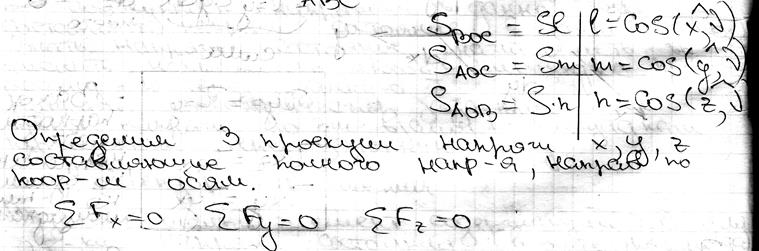 ABC
S_BOC = Sl | l = Cos(x,^ν)
S_AOC = Sm | m = Cos(y,^ν)
S_AOB = S·n | n = Cos(z,^ν)
Определим 3 проекции напряж x, y, z
составляющие полного напр-я, направ по
коор-м осям.
ΣF_x=0 ΣF_y=0 ΣF_z=0